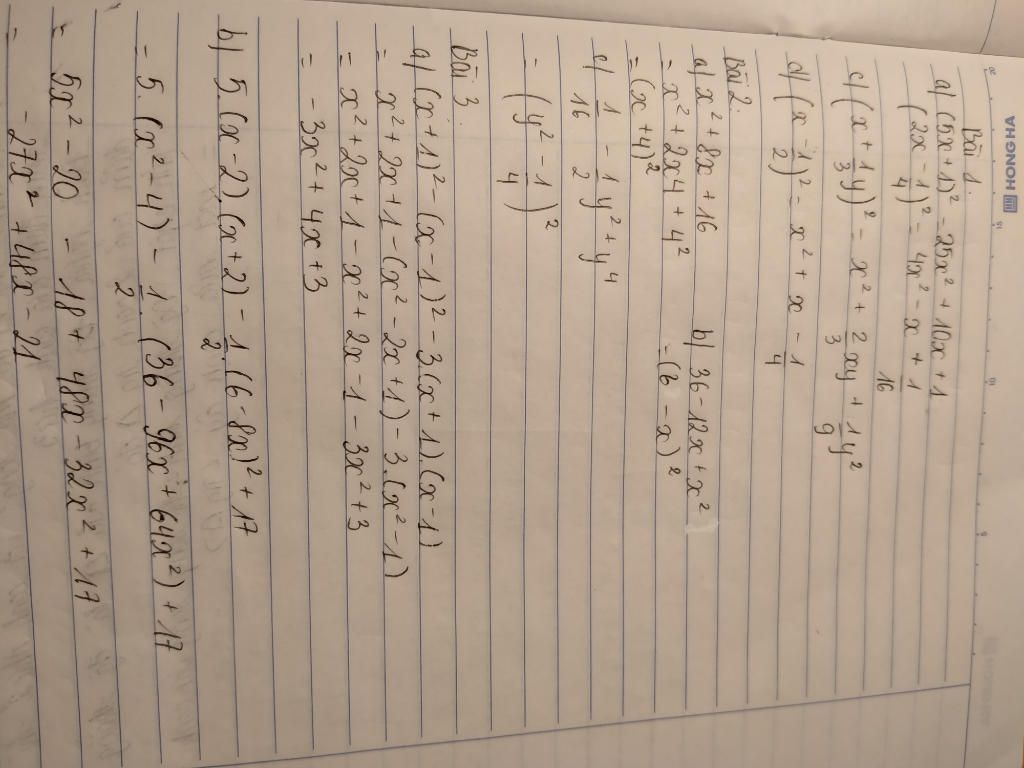 HONGHA
Bài 1.
a) (5x+1)² = 25x² + 10x + 1
(2x - 1/4)² = 4x² - x + 1/16
c) (x + 1/3 y)² = x² + 2/3 xy + 1/9 y²
d) (x - 1/2)² = x² + x - 1/4
Bài 2.
a) x² + 8x + 16 b) 36 - 12x + x²
= x² + 2x4 + 4² = (6 - x)²
= (x + 4)²
c) 1/16 - 1/2 y² + y⁴
= (y² - 1/4)²
Bài 3.
a) (x+1)² - (x-1)² - 3(x+1).(x-1)
= x² + 2x + 1 - (x² - 2x + 1) - 3.(x² - 1)
= x² + 2x + 1 - x² + 2x - 1 - 3x² + 3
= - 3x² + 4x + 3
b) 5.(x-2).(x+2) - 1/2.(6-8x)² + 17
= 5.(x² - 4) - 1/2.(36 - 96x + 64x²) + 17
= 5x² - 20 - 18 + 48x - 32x² + 17
= - 27x² + 48x - 21